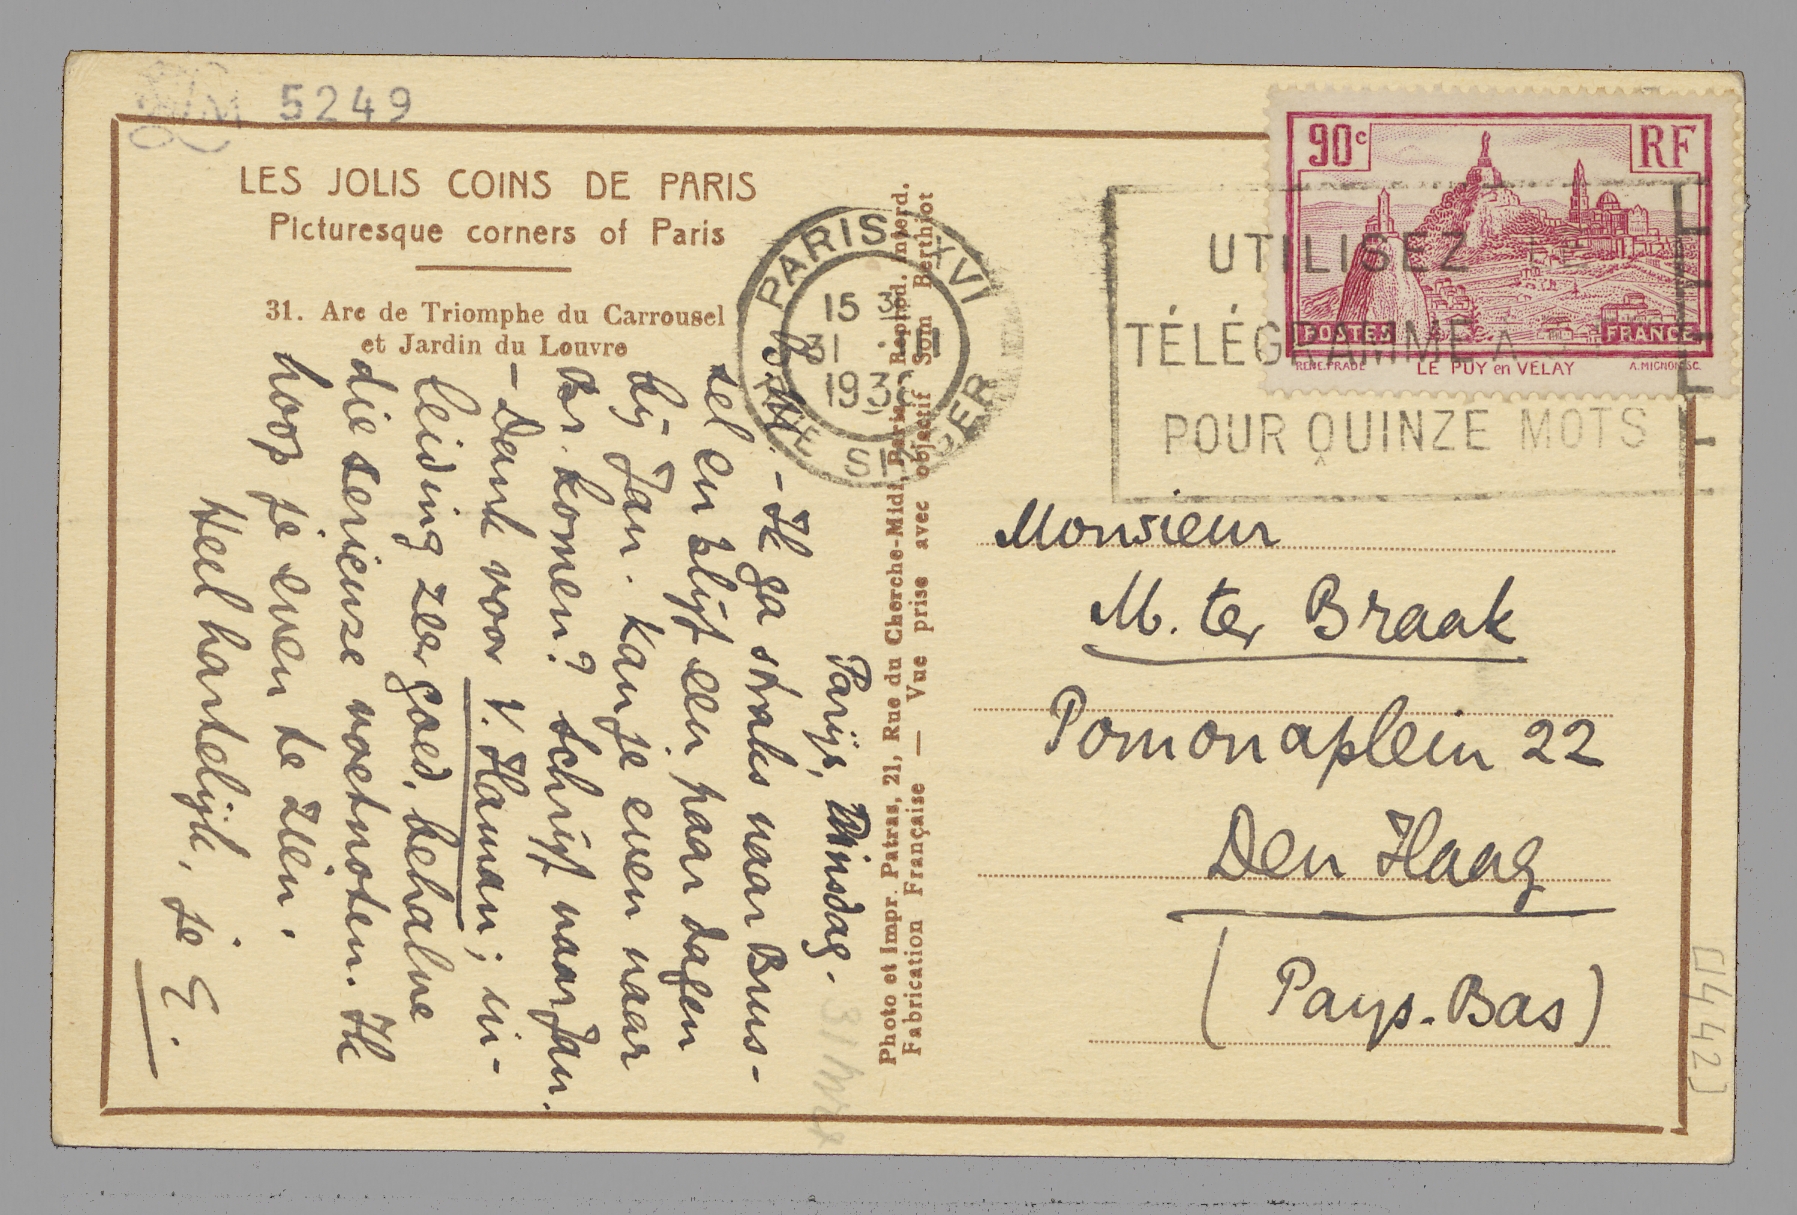 5249
LES JOLIS COINS DE PARIS
Picturesque corners of Paris
31. Arc de Triomphe du Carrousel
et Jardin du Louvre
PARIS XVI
15
31 · III
193
SINGER
UTILISEZ LE
TÉLÉGRAMME A
POUR QUINZE MOTS
90c
RF
POSTES
FRANCE
RENE.FRADE
LE PUY en VELAY
A.MIGNON.SC.
Photo et Impr. Patras, 21, Rue du Cherche-Midi, Paris. Reprod. interd.
Fabrication Française — Vue prise avec objectif Som Berthiot
Parijs, Dinsdag.
B.M. – Ik ga straks naar Brus-
sel en blijf een paar dagen
bij Jan. Kan je even naar
Br. komen? Schrijf naar Jan.
– Dank voor V. Haman; in-
leiding zeer goed, behalve
die serieuze voetnoten. Ik
hoop je even te zien.
Heel hartelijk, je E.
Monsieur
M. ter Braak
Pomonaplein 22
Den Haag
(Pays-Bas)
[1442]